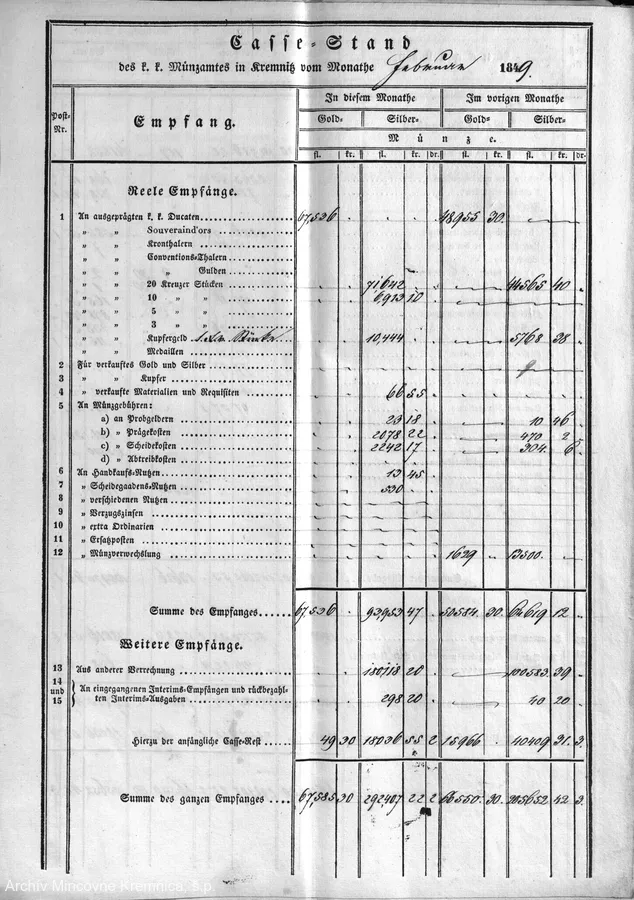 Casse-Stand
des k. k. Münzamtes in Kremnitz vom Monathe Februar 1849.
Post-Nr.
Empfang.
In diesem Monathe
Im vorigen Monathe
Gold- Silber- Gold- Silber-
Münze.
fl. kr. fl. kr. dr. fl. kr. fl. kr. dr.
Reele Empfänge.
1 An ausgeprägten k. k. Ducaten 67,536 . . . . 48955 30.
„ „ Souveraind'ors
„ „ Kronthalern
„ „ Conventions-Thalern
„ „ „ Gulden
„ „ 20 Kreuzer Stücken 71,642 . 44565 40
„ „ 10 „ „ 6,913 10
„ „ 5 „ „
„ „ 3 „ „
„ „ Kupfergeld 10,444 5768 38
„ „ Medaillen
2 Für verkauftes Gold und Silber
3 „ „ Kupfer
4 „ verkaufte Materialien und Requisiten 66 55
5 An Münzgebühren:
a) an Probgeldern 23 18 10 46
b) „ Prägekosten 2078 22 470 2
c) „ Scheidekosten 2242 17 304. 6
d) „ Abtreibkosten
6 An Handkaufs-Nutzen 13 45
7 „ Scheidegaadens-Nutzen 530
8 „ verschiedenen Nutzen
9 „ Verzugszinsen
10 „ extra Ordinarien
11 „ Ersatzposten
12 „ Münzverwechslung 1629 13500.
Summe des Empfanges 67,536 . 93,953 47 . 50584. 30. 64619 12
Weitere Empfänge.
13 Aus anderer Verrechnung 180,118 20 100583. 39
14 und 15 An eingegangenen Interims-Empfängen und rückbezahlten Interims-Ausgaben 298 20 40 20
Hierzu der anfängliche Casse-Rest 49 30 18036 55 2 15966 . 40409 31. 3.
Summe des ganzen Empfanges 67,585 30 292,407 22 2 66550. 30. 205652 42 3.
Archív Mincovne Kremnica, š.p.